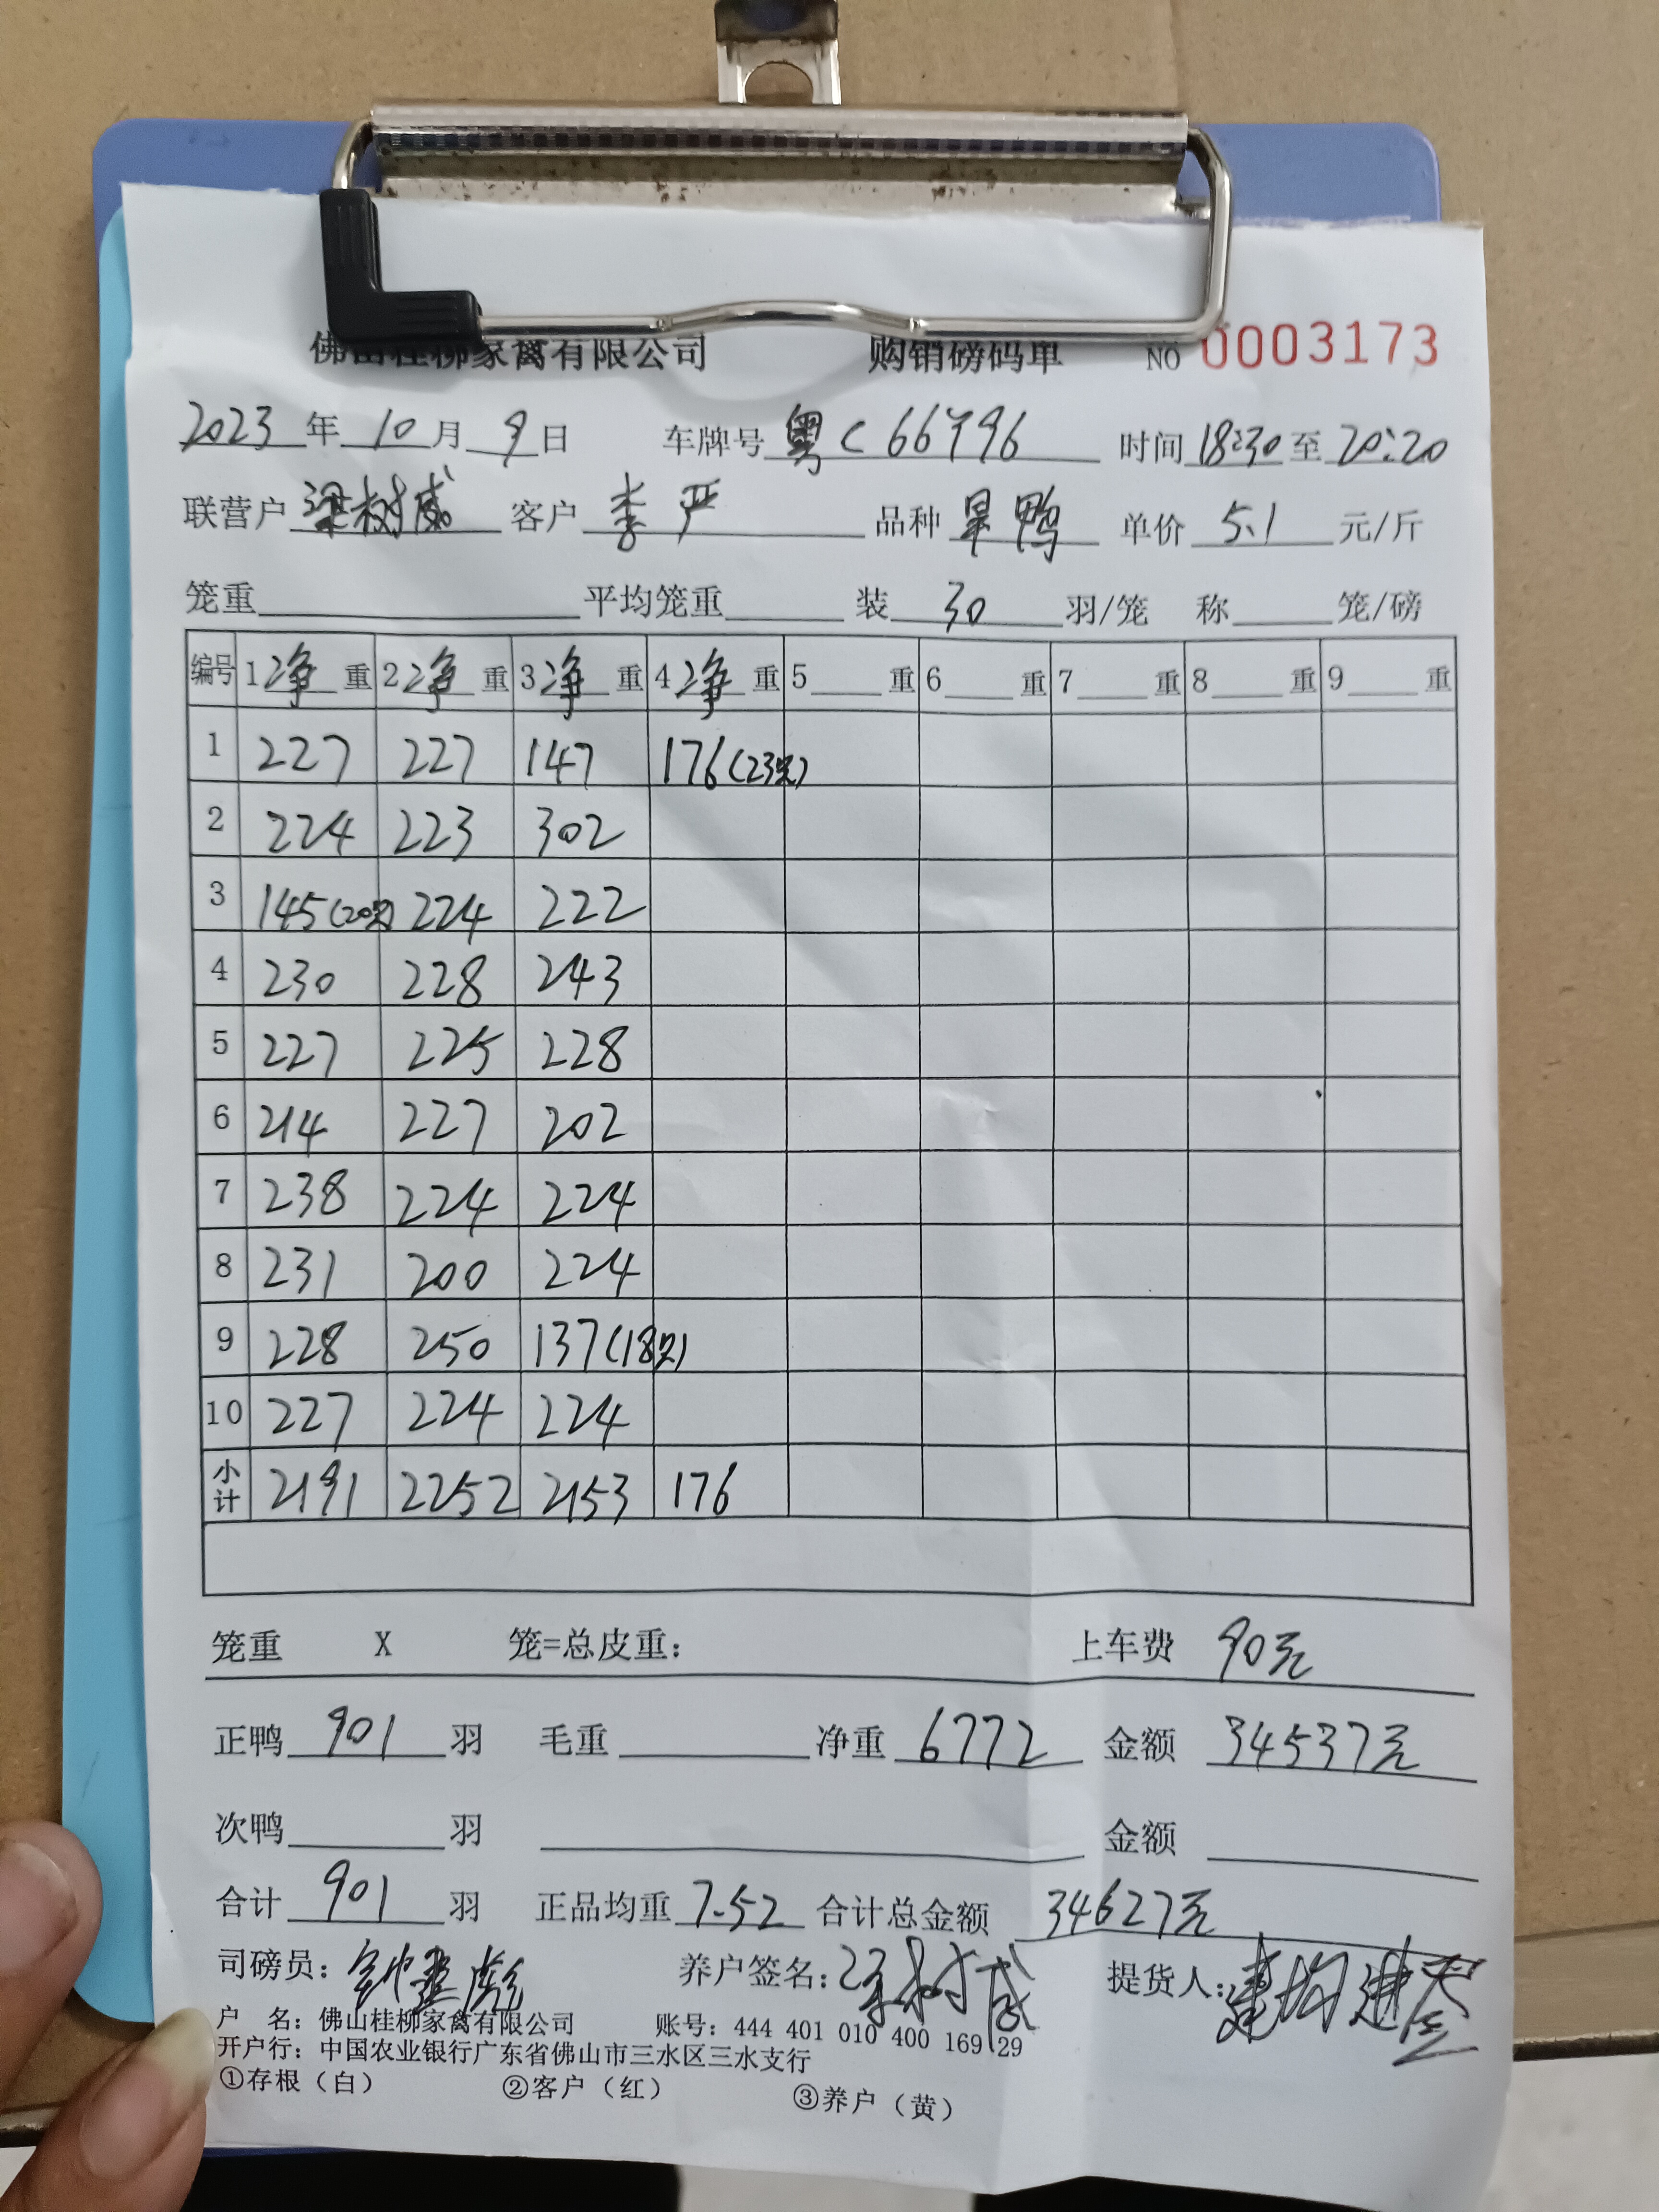 佛山桂柳家禽有限公司 购销磅码单 NO 0003173
2023年10月9日 车牌号 粤C 66Y96 时间 18:30 至 20:20
联营户 梁树威 客户 李严 品种 旱鸭 单价 5.1 元/斤
笼重 平均笼重 装 30 羽/笼 称 笼/磅
编号 1净重 2净重 3净重 4净重 5重 6重 7重 8重 9重
1 227 227 147 176(23只)
2 224 223 302
3 145(20只) 224 222
4 230 228 243
5 227 225 228
6 214 227 202
7 238 224 224
8 231 200 224
9 228 250 137(18只)
10 227 224 224
小计 2191 2252 2153 176
笼重 X 笼=总皮重: 上车费 90元
正鸭 901 羽 毛重 净重 6772 金额 34537元
次鸭 羽 金额
合计 901 羽 正品均重 7.52 合计总金额 34627元
司磅员: 养户签名: 梁树威 提货人:
户 名: 佛山桂柳家禽有限公司 账号: 444 401 010 400 169 29
开户行: 中国农业银行广东省佛山市三水区三水支行
①存根（白） ②客户（红） ③养户（黄）